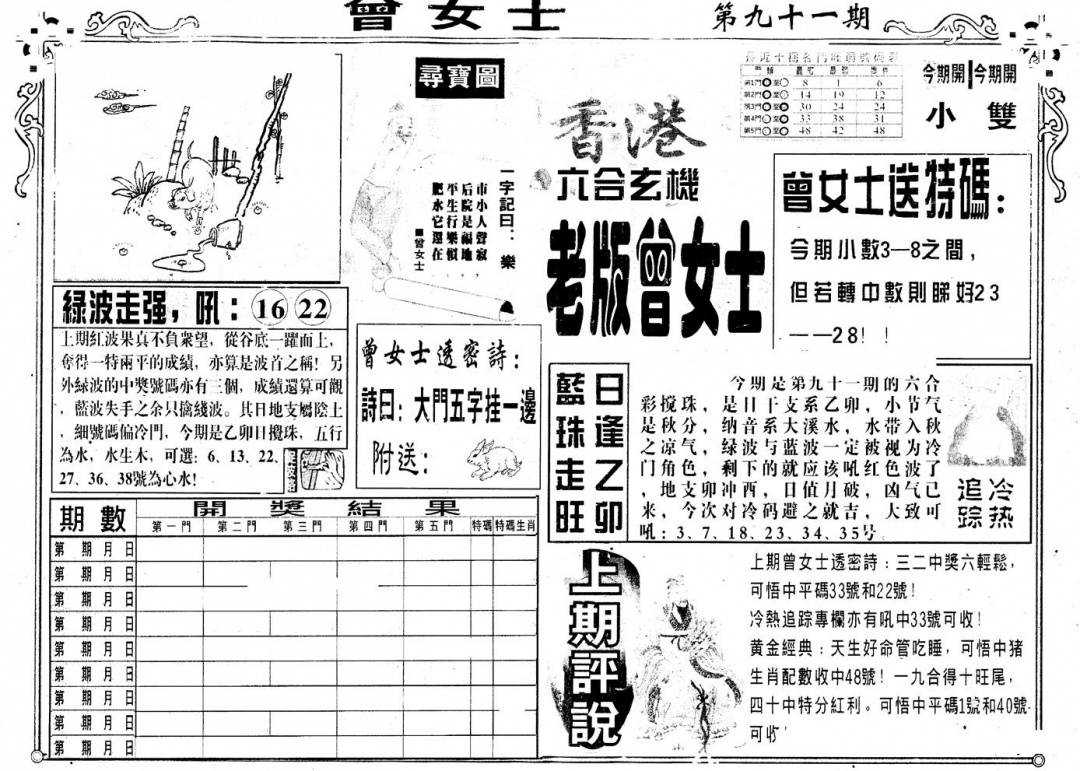 曾女士
第九十一期
尋寶圖
一字記曰：樂
市小人聲寂，
后院是福地，
平生行樂慎，
肥水它還在
■曾女士
香港
六合玄機
老版曾女士
8 1 6
14 19 12
30 24 24
33 38 31
48 42 48
今期開 今期開
小 雙
曾女士送特碼：
今期小數3—8之間，
但若轉中數則睇好23
——28！！
綠波走强，吼：16 22
上期紅波果真不負衆望，從谷底一躍而上，
奪得一特兩平的成績，亦算是波首之稱！另
外綠波的中獎號碼亦有三個，成績還算可觀
，藍波失手之余只擒綫波。其日地支屬陰上
，細號碼偏冷門，今期是乙卯日攪珠，五行
為水，水生木，可選：6、13、22、
27、36、38號為心水！
曾女士透密詩：
詩曰：大門五字挂一邊
附送：
藍珠走旺
日逢乙卯
今期是第九十一期的六合
彩搅珠，是日干支系乙卯，小节气
是秋分，纳音系大溪水，水带入秋
之凉气，绿波与蓝波一定被视为冷
门角色，剩下的就应该吼红色波了
，地支卯冲西，日值月破，凶气已
来，今次对冷码避之就吉，大致可
吼：3、7、18、23、34、35号
冷热
追踪
期數 開獎結果
第一門 第二門 第三門 第四門 第五門 特碼 特碼生肖
第 期 月 日
第 期 月 日
第 期 月 日
第 期 月 日
第 期 月 日
第 期 月 日
第 期 月 日
第 期 月 日
第 期 月 日
上期評說
上期曾女士透密詩：三二中獎六輕鬆，
可悟中平碼33號和22號！
冷熱追踪專欄亦有吼中33號可收！
黃金經典：天生好命管吃睡，可悟中猪
生肖配數收中48號！一九合得十旺尾，
四十中特分紅利。可悟中平碼1號和40號
可收